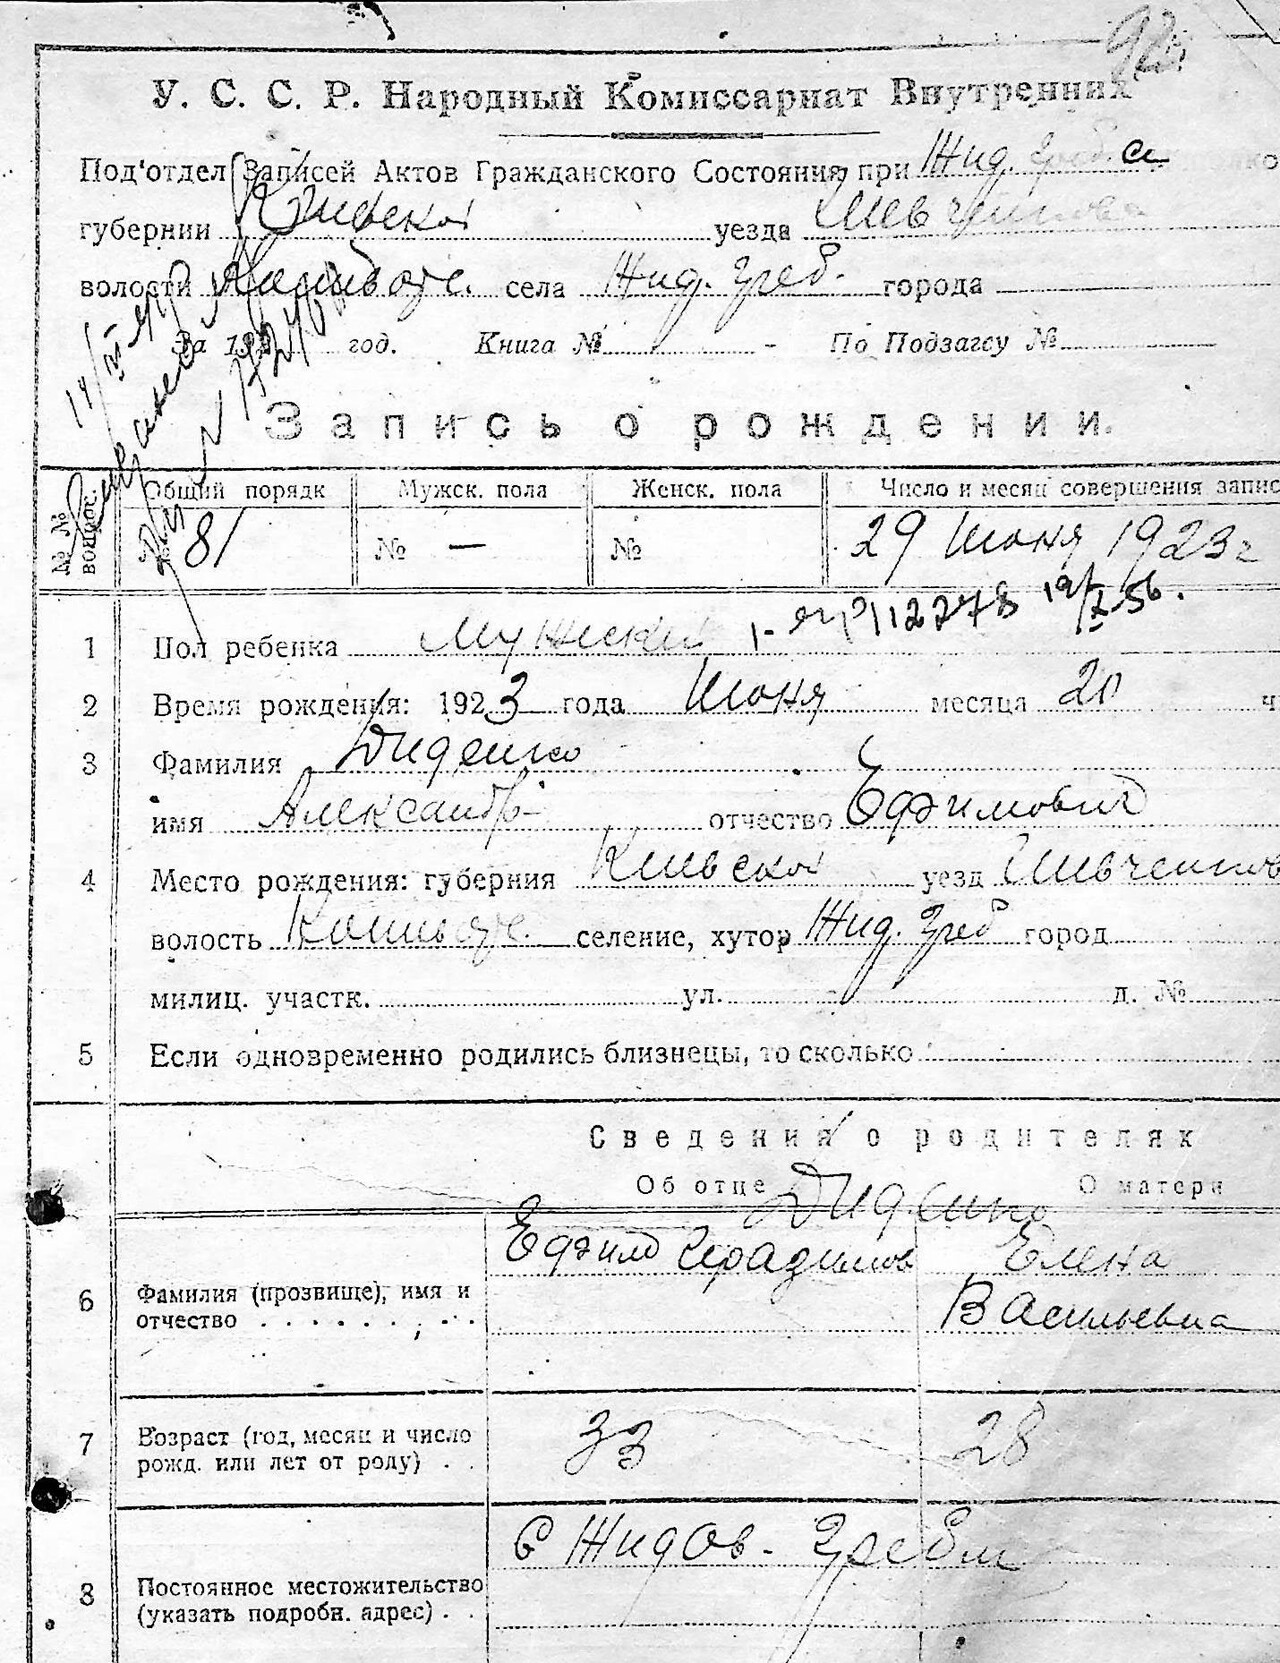 92
У. С. С. Р. Народный Комиссариат Внутренних
Под'отдел Записей Актов Гражданского Состояния при Жид. Греб. с
губернии Киевской уезда Шевченков
волости села Жид. Греб. города
За 192 год. Книга № - По Подзагсу №
Запись о рождении.
№ № вопрос. Общий порядк Мужск. пола Женск. пола Число и месяц совершения запис
№ 81 № — № 29 Июня 1923 г
112278 19/X-56.
1 Пол ребенка Мужеский
2 Время рождения: 1923 года Июня месяца 20 ч
3 Фамилия Диденко
имя Александр отчество Ефимович
4 Место рождения: губерния Киевской уезд Шевченков
волость селение, хутор Жид. Греб город
милиц. участк. ул. д. №
5 Если одновременно родились близнецы, то сколько
Сведения о родителях
Об отце Диденко О матери
6 Фамилия (прозвище), имя и отчество Ефим Елена
Васильевна
7 Возраст (год, месяц и число рожд. или лет от роду) 33 28
8 Постоянное местожительство (указать подробн. адрес) с Жидов. Гребли